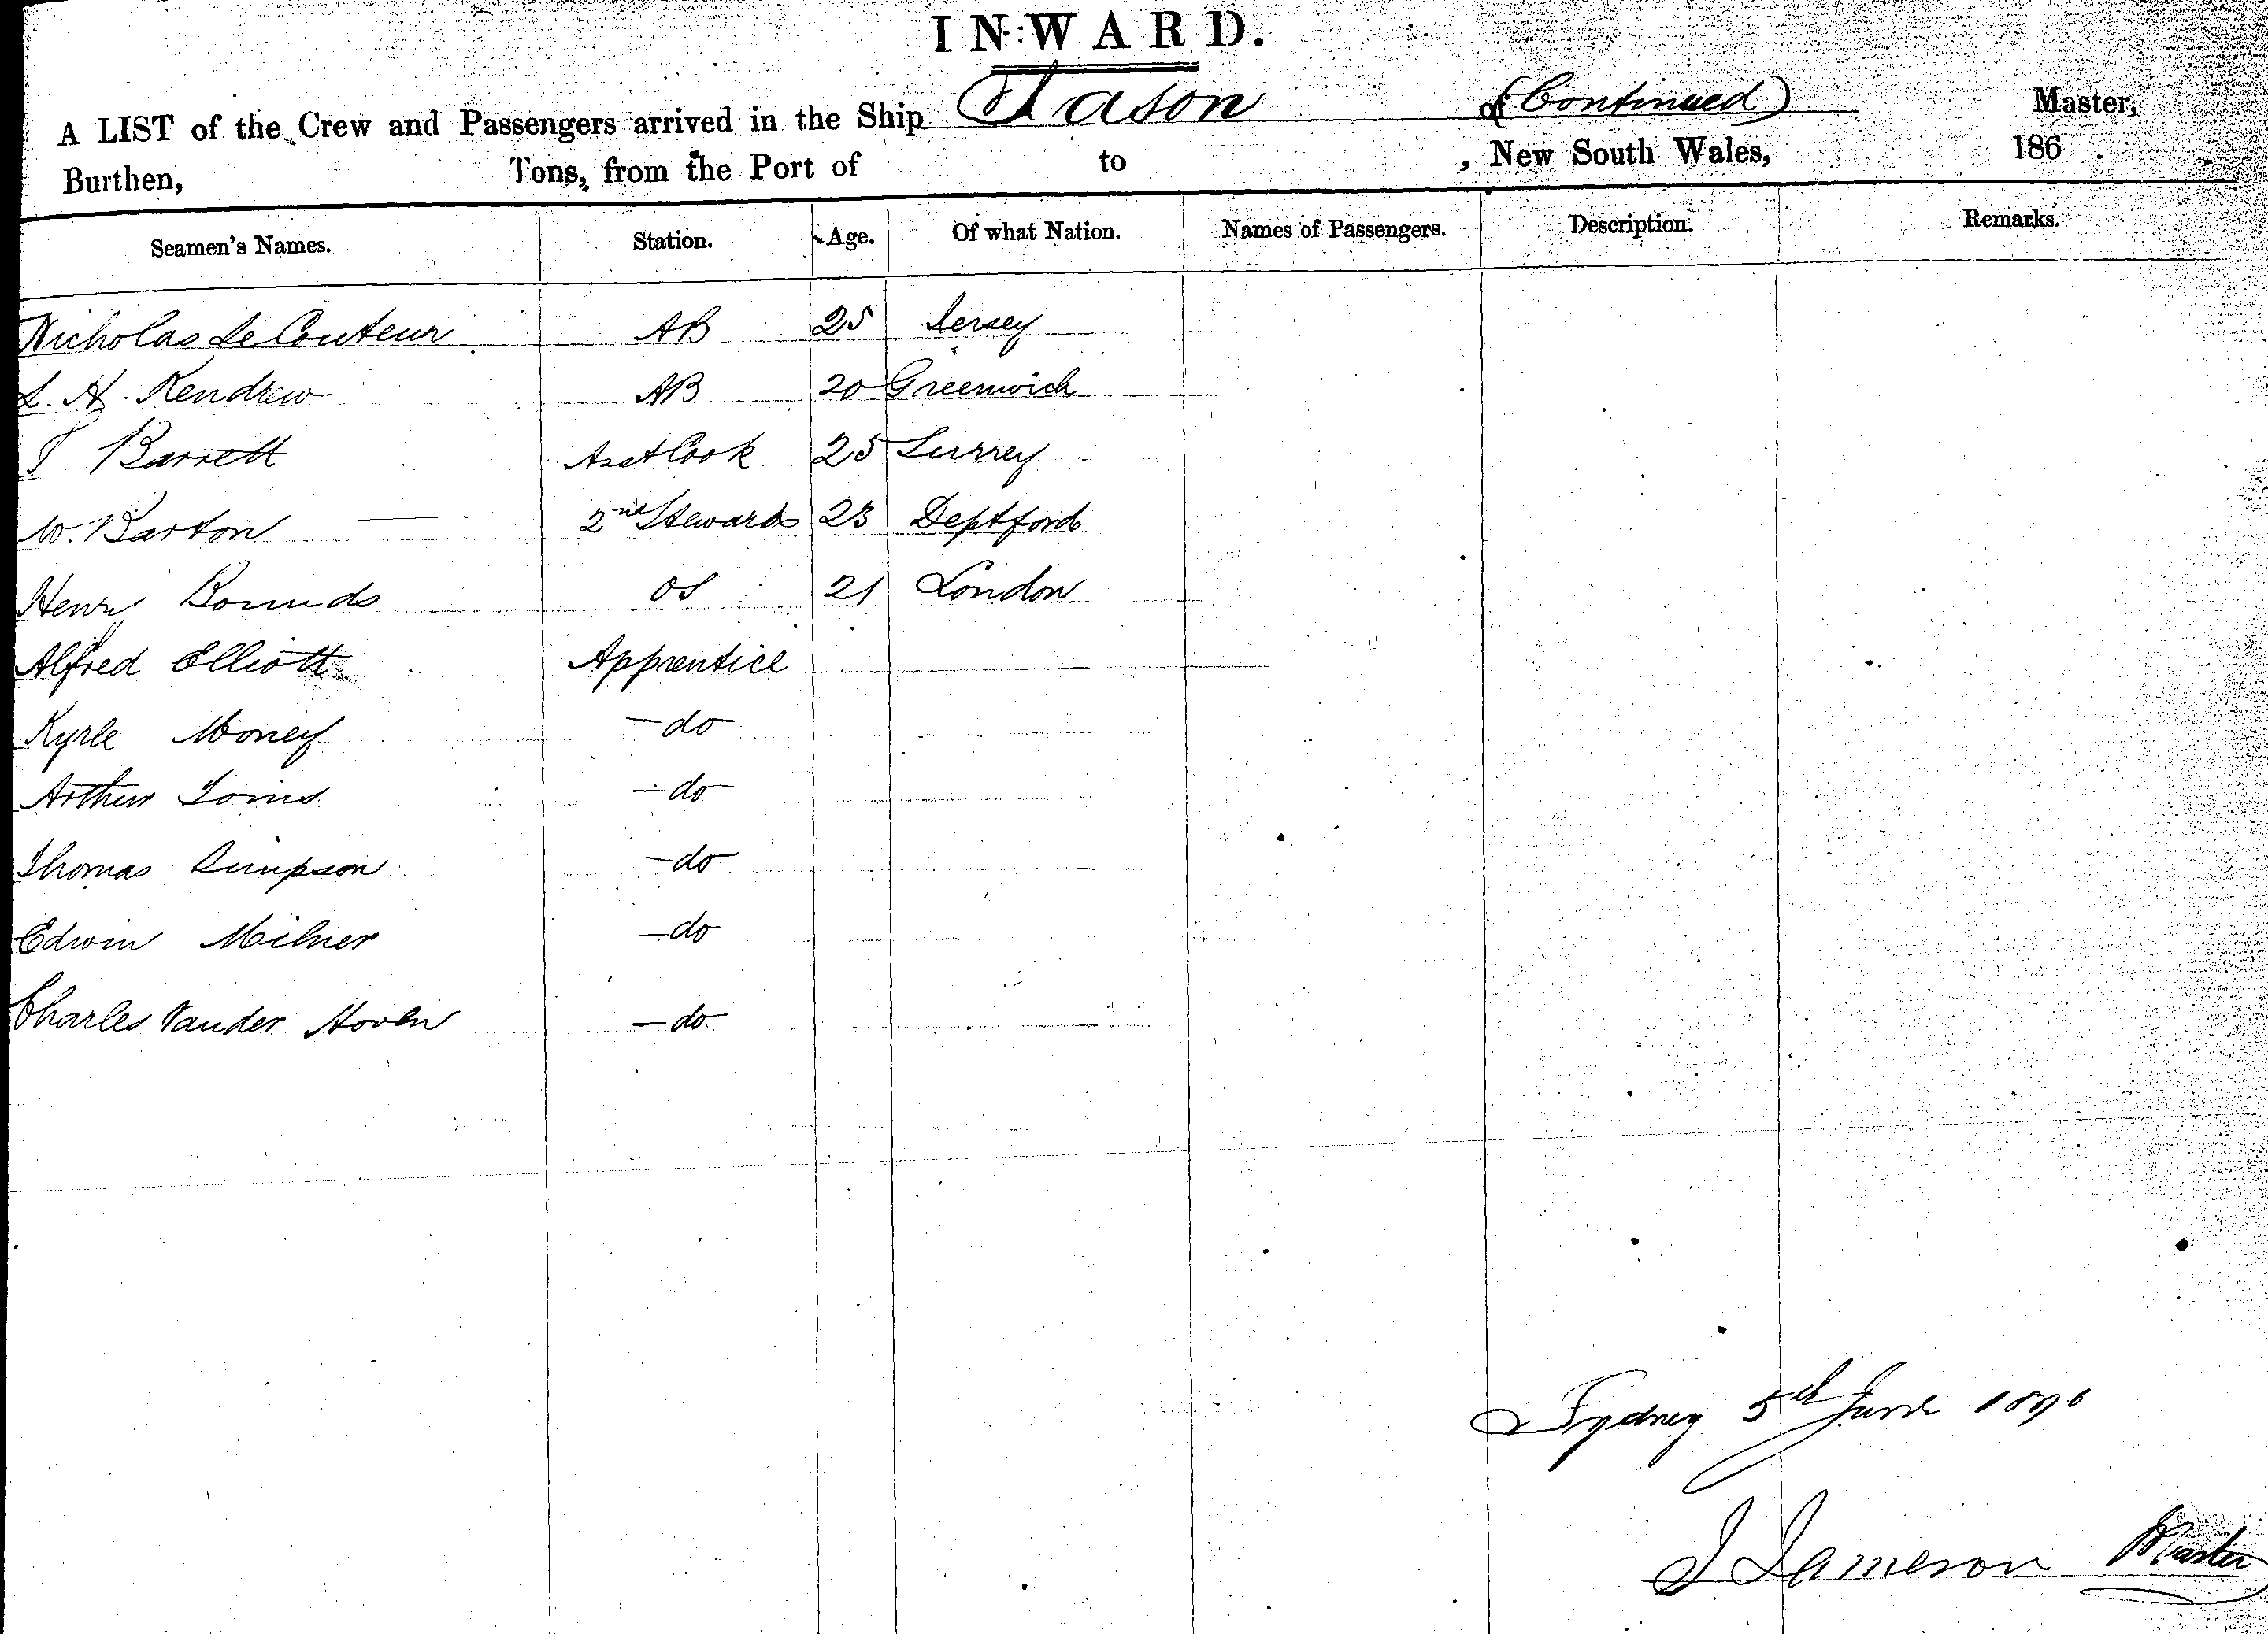 INWARD.
A LIST of the Crew and Passengers arrived in the Ship Jason of (Continued) Master,
Burthen, Tons, from the Port of to , New South Wales, 186 .
Seamen's Names. Station. Age. Of what Nation. Names of Passengers. Description. Remarks.
Nicholas Le Couteur AB 25 Jersey
L. H. Kendrew AB 20 Greenwich
J Barrett Asst Cook 25 Surrey
W. Barton 2nd Steward 23 Deptford
Henry Bounds OS 21 London
Alfred Elliott Apprentice
Kyrle Money - do -
Arthur - do -
Thomas Simpson - do -
Edwin Milner - do -
Charles Vander Hoven - do -
Sydney 5th June
J Jameson Master